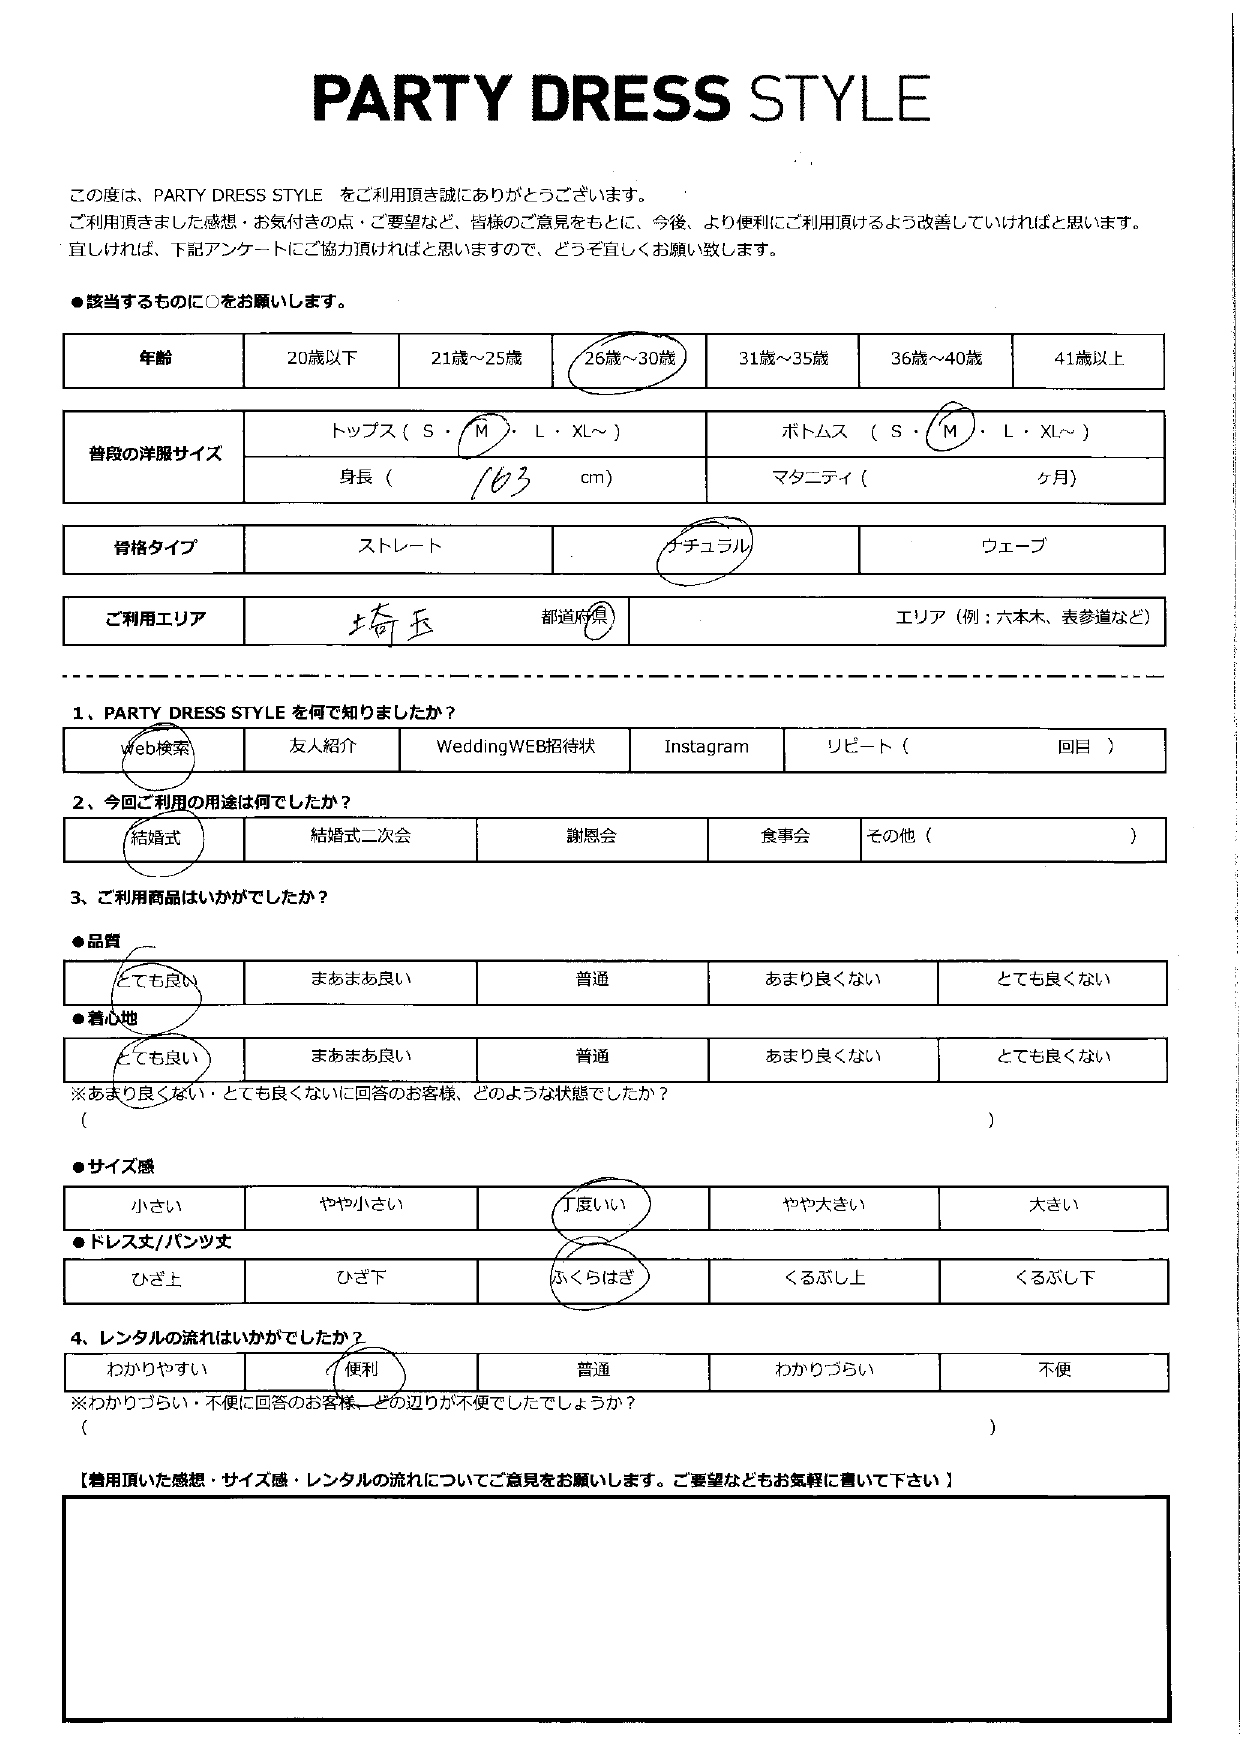 PARTY DRESS STYLE
この度は、PARTY DRESS STYLE をご利用頂き誠にありがとうございます。
ご利用頂きました感想・お気付きの点・ご要望など、皆様のご意見をもとに、今後、より便利にご利用頂けるよう改善していければと思います。
宜しければ、下記アンケートにご協力頂ければと思いますので、どうぞ宜しくお願い致します。
●該当するものに○をお願いします。
年齢 20歳以下 21歳～25歳 26歳～30歳 31歳～35歳 36歳～40歳 41歳以上
普段の洋服サイズ トップス ( S ・ M ・ L ・ XL～ ) ボトムス ( S ・ M ・ L ・ XL～ )
身長 ( 163 cm) マタニティ ( ヶ月)
骨格タイプ ストレート ナチュラル ウェーブ
ご利用エリア 埼玉 都道府県 エリア（例：六本木、表参道など）
1、PARTY DRESS STYLE を何で知りましたか？
Web検索 友人紹介 WeddingWEB招待状 Instagram リピート ( 回目 )
2、今回ご利用の用途は何でしたか？
結婚式 結婚式二次会 謝恩会 食事会 その他 ( )
3、ご利用商品はいかがでしたか？
●品質
とても良い まあまあ良い 普通 あまり良くない とても良くない
●着心地
とても良い まあまあ良い 普通 あまり良くない とても良くない
※あまり良くない・とても良くないに回答のお客様、どのような状態でしたか？
( )
●サイズ感
小さい やや小さい 丁度いい やや大きい 大きい
●ドレス丈/パンツ丈
ひざ上 ひざ下 ふくらはぎ くるぶし上 くるぶし下
4、レンタルの流れはいかがでしたか？
わかりやすい 便利 普通 わかりづらい 不便
※わかりづらい・不便に回答のお客様、どの辺りが不便でしたでしょうか？
( )
【着用頂いた感想・サイズ感・レンタルの流れについてご意見をお願いします。ご要望などもお気軽に書いて下さい 】